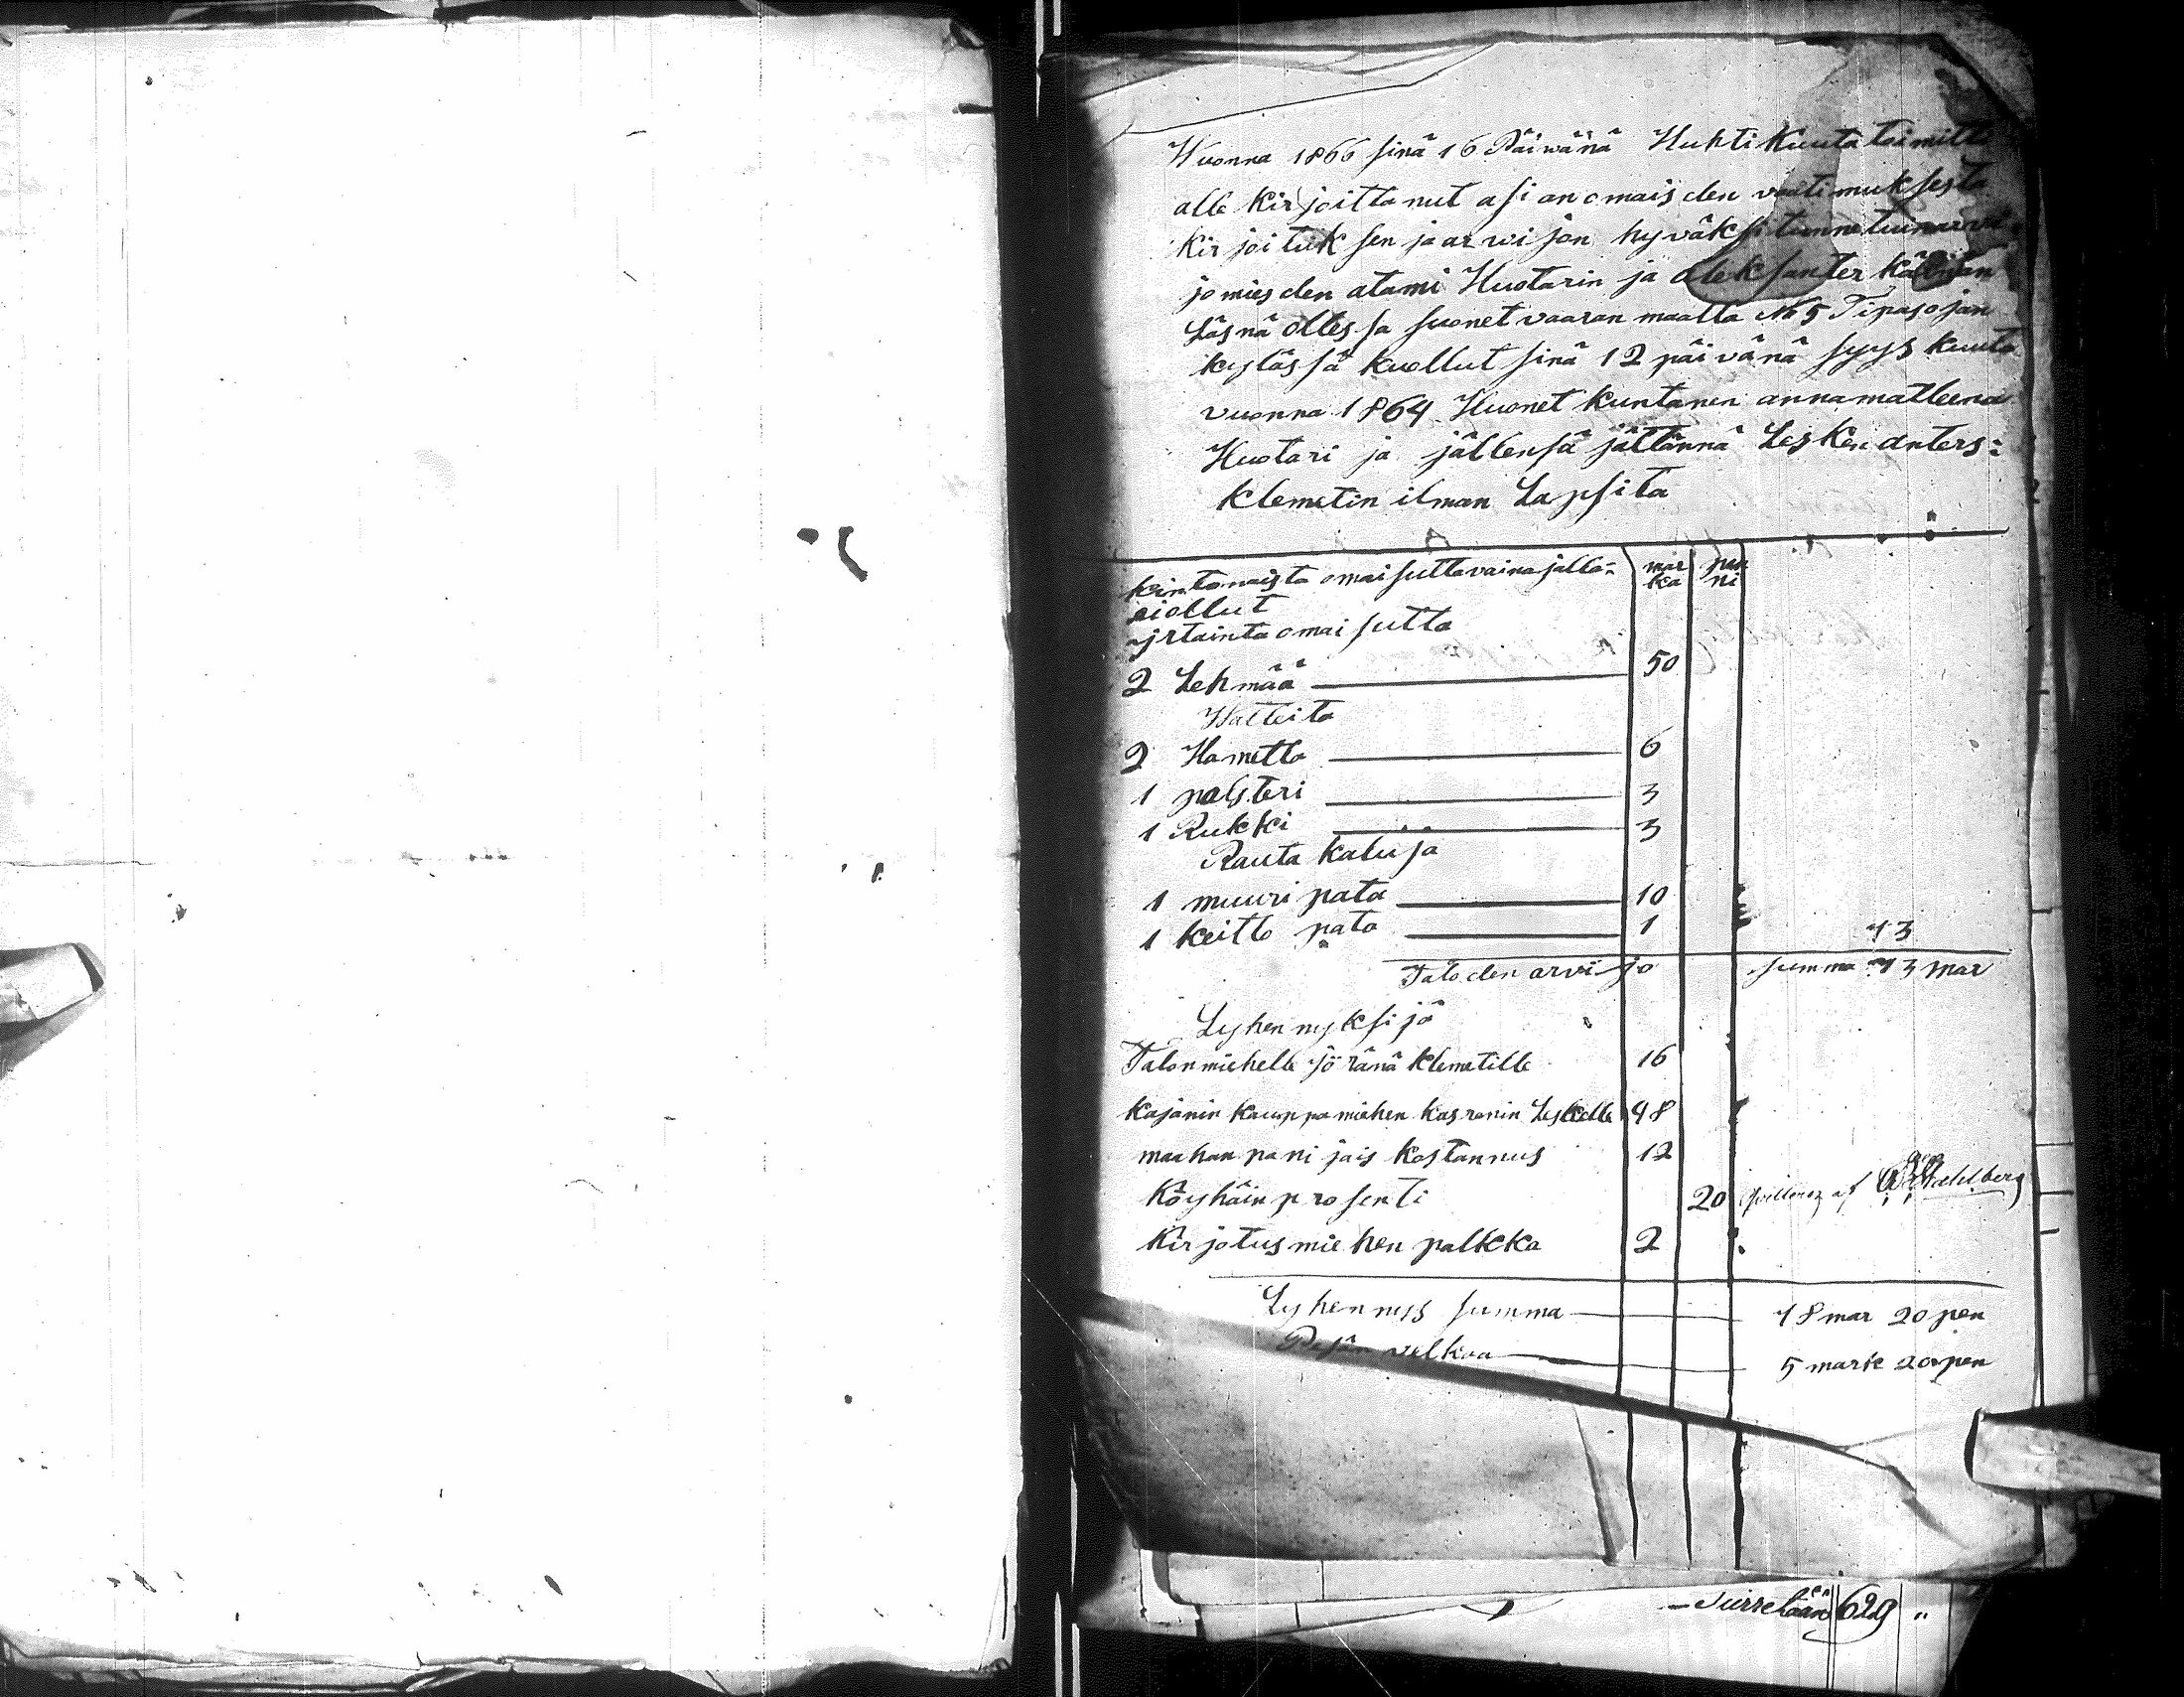 Wuonna 1866 sinä 16 Päiwänä Huhti kuuta toimitti
alle kirjoittanut asianomaisden vaatimuksesta
kirjoituksen ja arwijon hyväksi tunnetuin arvi
jo miesden atami Huotarin ja aleksanter
Läsnä ollessa suonetvaaran maalla No 5 Tipasojan
kylässä kuollut sinä 12 päivänä syys kuuta
vuonna 1864 Huonet kuntanen anna matleena
Huotari ja jällensä jättännä Lesken anters:
klemetin ilman Lapsita
kintonaista omaisutta vaina jalla= mar pen
eiollut ka ni
irtainta omaisutta
2 Lehmää 50
Watteita
2 Hametta 6
1 palsteri 3
1 Rukki 3
Rauta kaluja
1 muuri pata 10
1 keitto pata 1 73
Taloden arvijo summa 73 mar
Lyhennyksijä
Talonmiehelle Jöränä klemetille 16
Kajanin kauppamiehen kasranin Leskelle 48
maahan panijais kostannus 12
Köyhäin prosenti 20 af Wahlberg
Kirjotus miehen palkka 2
Lyhennys summa 78 mar 20 pen
Pesän velkaa 5 mark 20 pen
Siirretään 629 "